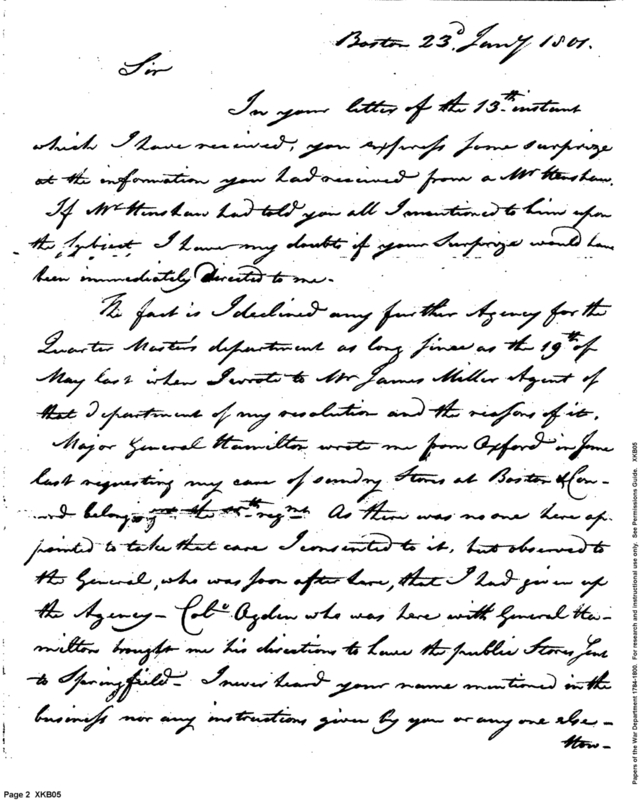 Boston 23d. Jany 1801.
Sir
In your letter of the 13th instant
which I have received, you express some surprize
at the information you had received from a Mr Henshaw.
If Mr Henshaw had told you all I mentioned to him upon
the subject I have my doubts if your Surprize would have
been immediately directed to me.
The fact is I declined any further Agency for the
Quarter Master's department as long since as the 19th of
May last when I wrote to Mr James Miller Agent of
that department of my resolution and the reasons of it.
Major General Hamilton wrote me from Oxford in June
last requesting my care of sundry Stores at Boston & Con-
cord belonging to the regmt. As there was no one here ap-
pointed to take that care I consented to it, but observed to
the General, who was soon after here, that I had given up
the Agency - Colo Ogden who was here with General Ha-
milton brought me his directions to have the public Stores sent
to Springfield - I never heard your name mentioned in the
business nor any instructions given by you or any one else -
How-
Page 2 XKB05
Papers of the War Department 1784-1800. For research and instructional use only. See Permissions Guide. XKB05